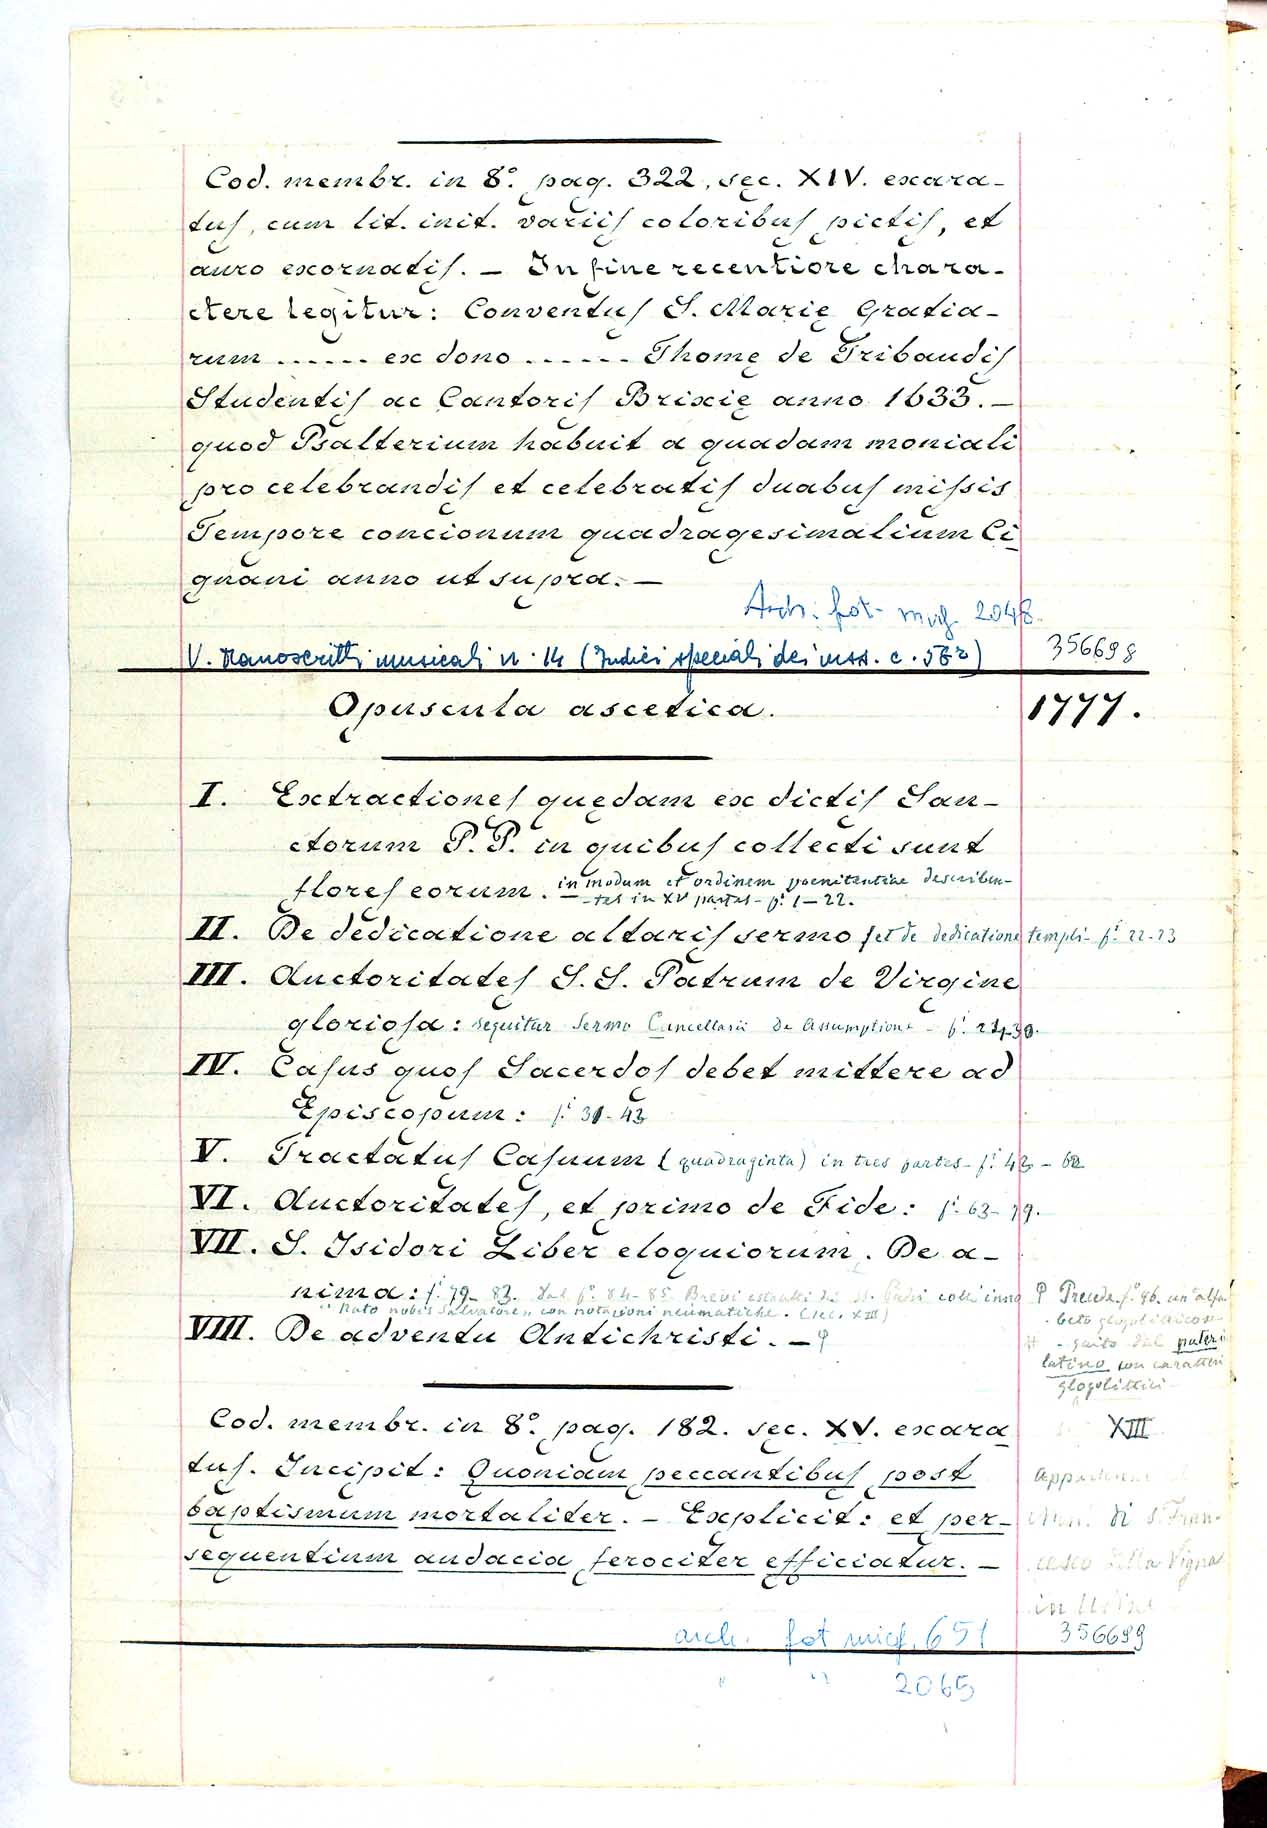 Cod. membr. in 8.° pag. 322, sec. XIV. exara-
tus, cum lit. init. variis coloribus pictis, et
auro exornatis. - In fine recentiore chara-
ctere legitur: Conventus S. Marię Gratia-
rum ...... ex dono ...... Thomę de Tribaudis
Studentis ac Cantoris Brixię anno 1633. -
quod Psalterium habuit a quadam moniali
pro celebrandis et celebratis duabus missis
Tempore concionum quadragesimalium Ci-
gnani anno ut supra. -
Arch. fot. micf. 2048.
V. Manoscritti musicali n. 14 (Indici speciali dei mss. c. 582)
356698
Opuscula ascetica.
1777.
I. Extractiones quędam ex dictis San-
ctorum P. P. in quibus collecti sunt
flores eorum. in modum et ordinem poenitentiae describen-
-tes in XV partes - f.i 1-22.
II. De dedicatione altaris sermo et de dedicatione templi - f.i 22-23
III. Auctoritates S. S. Patrum de Virgine
gloriosa: sequitur Sermo Cancellarii de Assumptione - f.i 24-30.
IV. Casus quos Sacerdos debet mittere ad
Episcopum: f.i 31-42
V. Tractatus Casuum (quadraginta) in tres partes - f.i 42-62
VI. Auctoritates, et primo de Fide: f.i 63-79.
VII. S. Isidori Liber eloquiorum. De a-
nima: f.i 79-83. Dal f.° 84-85 Brevi estratti di SS. Padri coll'inno
"Nato nobis Salvatore" con notazioni neumatiche. (sec. XIII)
VIII. De adventu Antichristi. -
Precede f.° 86. un alfa-
beto glagolitico se-
guito dal pater
latino con caratteri
glagolittici -
Cod. membr. in 8.° pag. 182. sec. XV. exara
XIII
tus. Incipit: Quoniam peccantibus post
baptismum mortaliter. - Explicit: et per-
sequentium audacia ferociter efficiatur. -
di S. Fran-
cesco della Vigna
in Udine
356699
arch. fot micf. 651
" " 2065